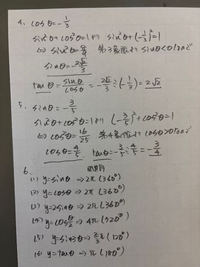 4. cosθ = -1/3
sin²θ + cos²θ = 1 より sin²θ + (-1/3)² = 1
⇔ sin²θ = 8/9 第3象限より sinθ < 0 なので
sinθ = -2√2/3
tanθ = sinθ/cosθ = -2√2/3 ÷ (-1/3) = 2√2
5. sinθ = -3/5
sin²θ + cos²θ = 1 より (-3/5)² + cos²θ = 1
⇔ cos²θ = 16/25 第4象限より cosθ > 0 なので
cosθ = 4/5 tanθ = -3/5 ÷ 4/5 = -3/4
6. 周期
(1) y = sinθ ⇒ 2π (360°)
(2) y = cosθ ⇒ 2π (360°)
(3) y = 2sinθ ⇒ 2π (360°)
(4) y = cos θ/2 ⇒ 4π (720°)
(5) y = sin3θ ⇒ 2/3π (120°)
(6) y = tanθ ⇒ π (180°)